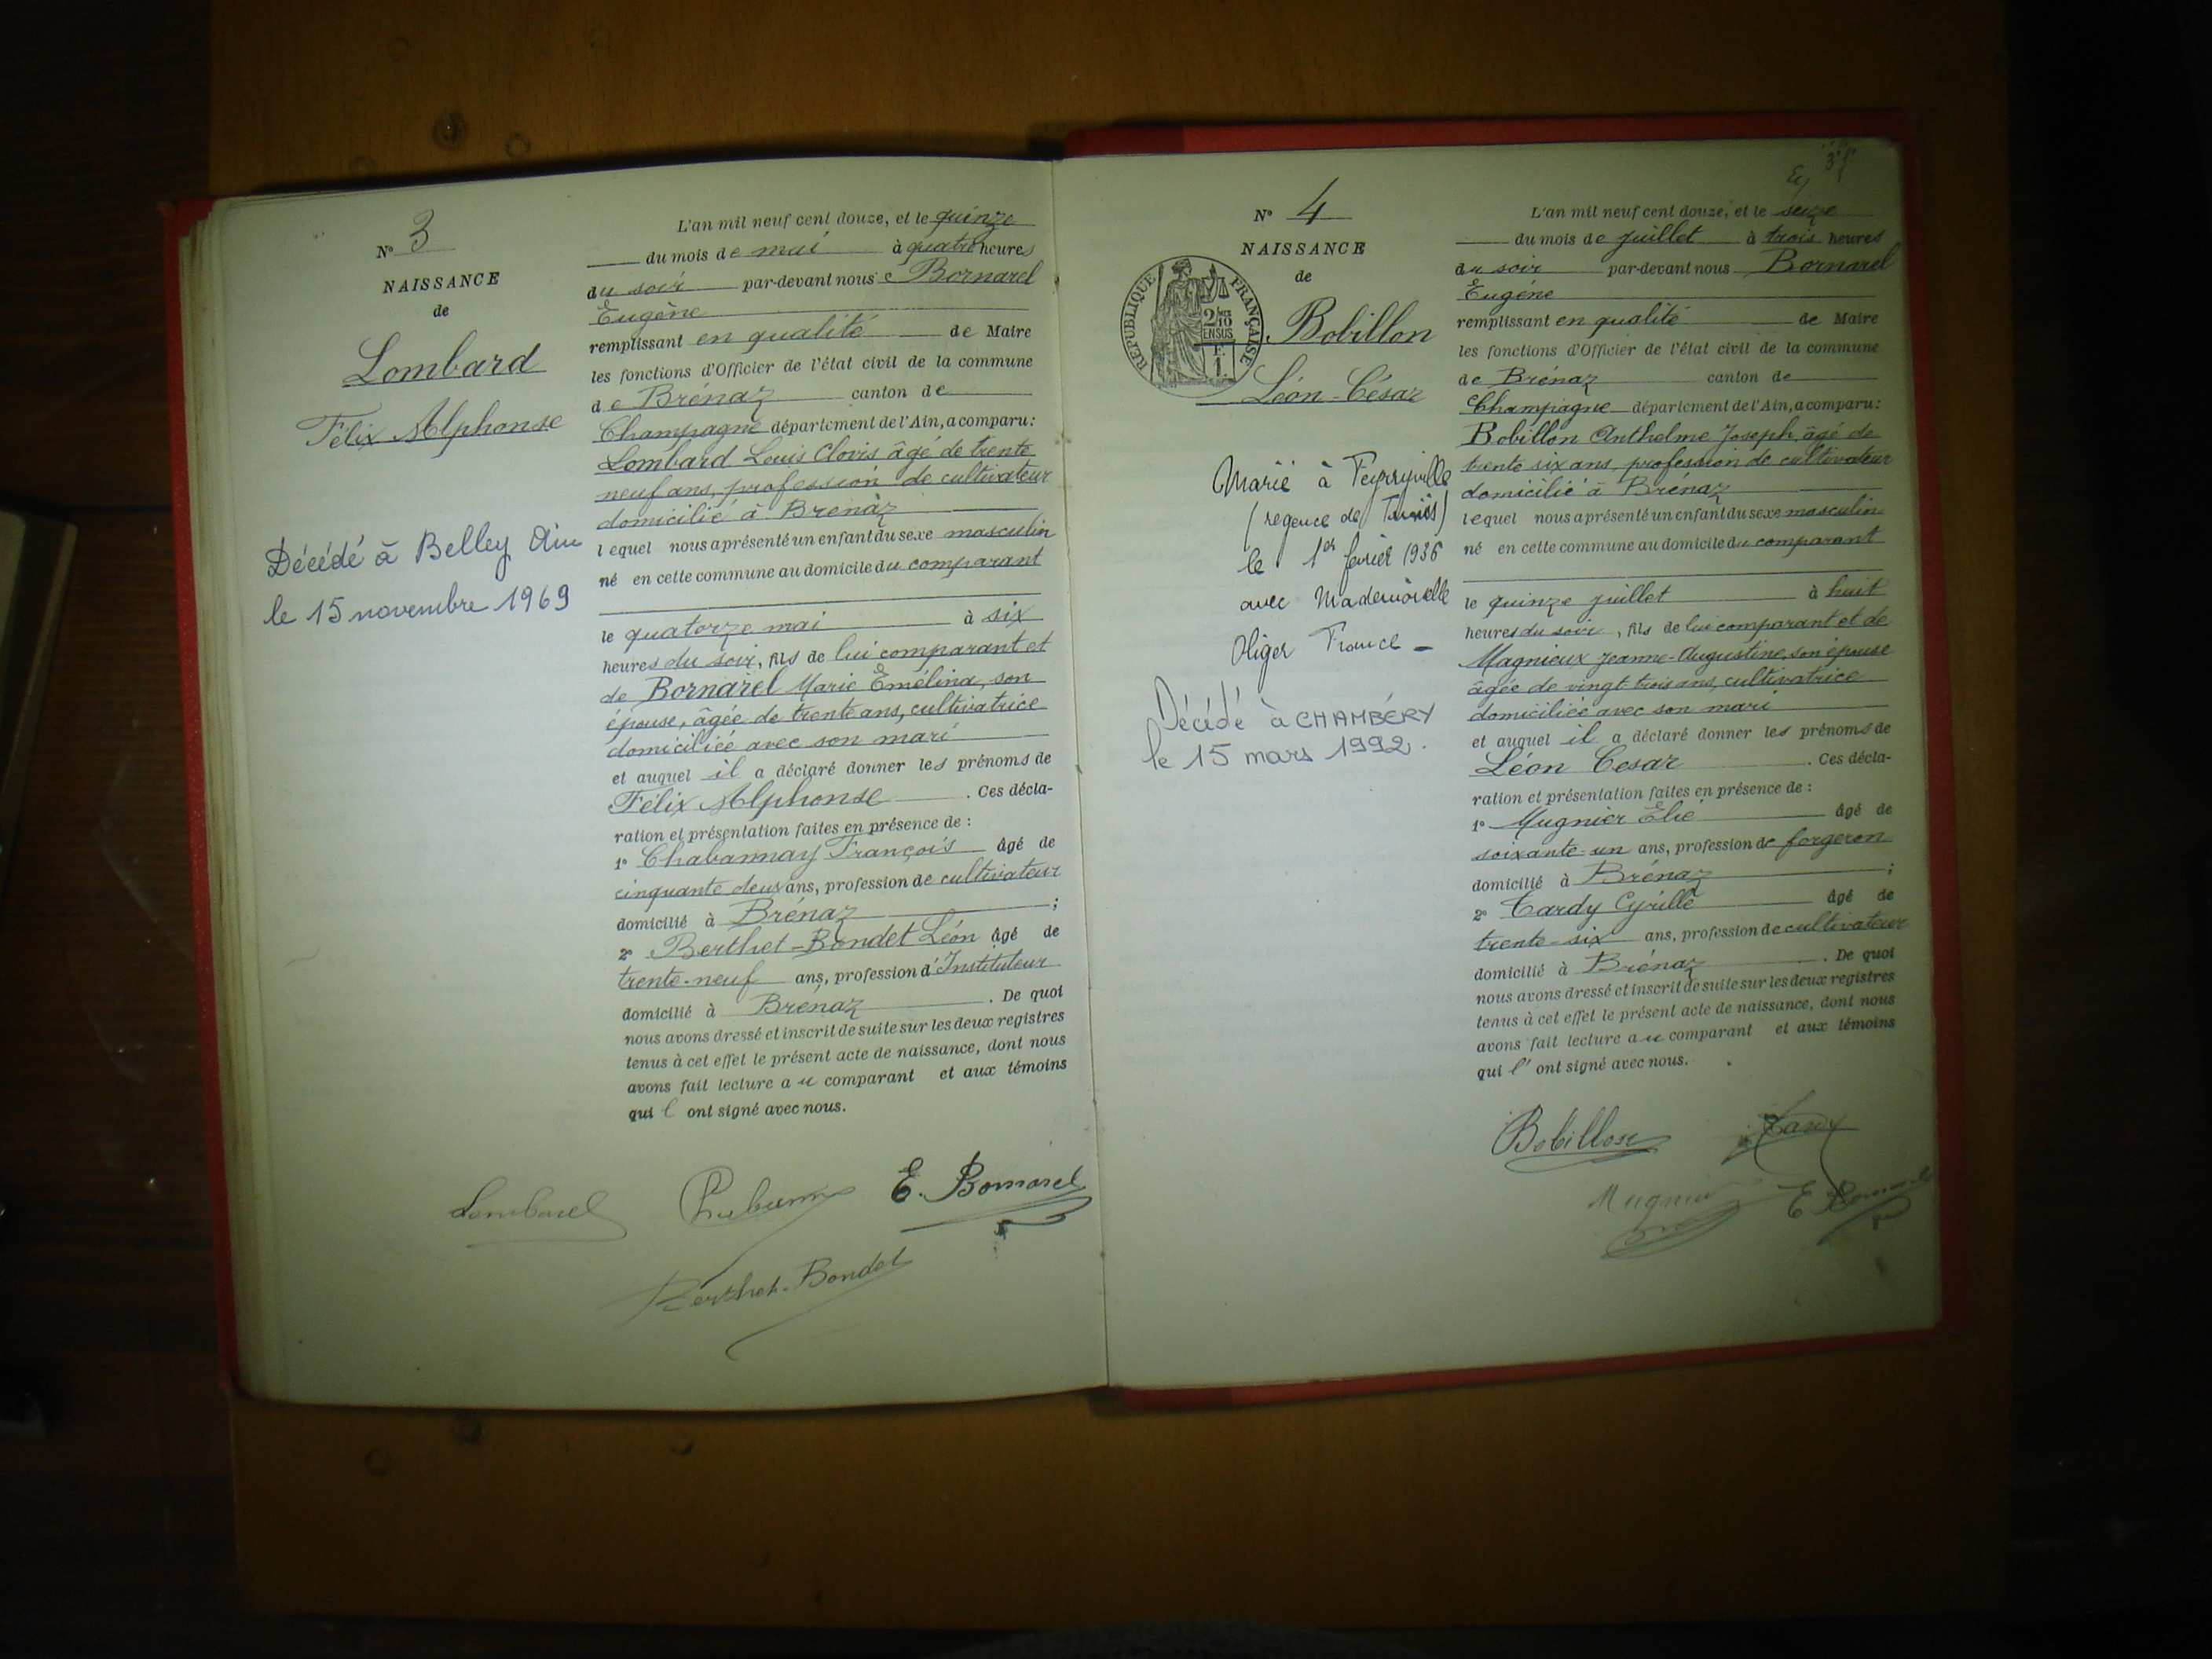 N° 3
NAISSANCE
de
Lombard
Félix Alphonse
Décédé à Belley Ain
le 15 novembre 1969
L'an mil neuf cent douze, et le quinze
du mois de mai à quatre heures
du soir par-devant nous Bornarel
Eugène
remplissant en qualité de Maire
les fonctions d'Officier de l'état civil de la commune
de Brénaz canton de
Champagne département de l'Ain, a comparu:
Lombard Louis Clovis âgé de trente
neuf ans, profession de cultivateur
domicilié à Brénaz
lequel nous a présenté un enfant du sexe masculin
né en cette commune au domicile du comparant
le quatorze mai à six
heures du soir, fils de lui comparant et
de Bornarel Marie Emélina, son
épouse, âgée de trente ans, cultivatrice
domiciliée avec son mari
et auquel il a déclaré donner les prénoms de
Félix Alphonse. Ces décla-
ration et présentation faites en présence de :
1° Chabannay François âgé de
cinquante deux ans, profession de cultivateur
domicilié à Brénaz ;
2° Berthet-Bondet Léon âgé de
trente-neuf ans, profession d'Instituteur
domicilié à Brénaz. De quoi
nous avons dressé et inscrit de suite sur les deux registres
tenus à cet effet le présent acte de naissance, dont nous
avons fait lecture au comparant et aux témoins
qui l ont signé avec nous.
Lombard E. Bornarel
Berthet-Bondet
N° 4
NAISSANCE
de
RÉPUBLIQUE FRANÇAISE
2/10
EN SUS
F.
1.
Bobillon
Léon-César
Marié à Ferryville
(régence de Tunis)
le 1er février 1936
avec Mademoiselle
Oliger France -
Décédé à CHAMBÉRY
le 15 mars 1992.
L'an mil neuf cent douze, et le seize
du mois de juillet à trois heures
du soir par-devant nous Bornarel
Eugéne
remplissant en qualité de Maire
les fonctions d'Officier de l'état civil de la commune
de Brénaz canton de
Champagne département de l'Ain, a comparu:
Bobillon Anthelme Joseph, âgé de
trente six ans, profession de cultivateur
domicilié à Brénaz
lequel nous a présenté un enfant du sexe masculin
né en cette commune au domicile du comparant
le quinze juillet à huit
heures du soir, fils de lui comparant et de
Magnieux Jeanne-Augustine, son épouse
âgée de vingt-trois ans, cultivatrice
domiciliée avec son mari
et auquel il a déclaré donner les prénoms de
Léon Cesar. Ces décla-
ration et présentation faites en présence de :
1° Mugnier Elie âgé de
soixante-un ans, profession de forgeron
domicilié à Brénaz ;
2° Tardy Cyrille âgé de
trente-six ans, profession de cultivateur
domicilié à Brénaz. De quoi
nous avons dressé et inscrit de suite sur les deux registres
tenus à cet effet le présent acte de naissance, dont nous
avons fait lecture au comparant et aux témoins
qui l' ont signé avec nous.
Bobillon Tardy
Mugnier E Bornarel